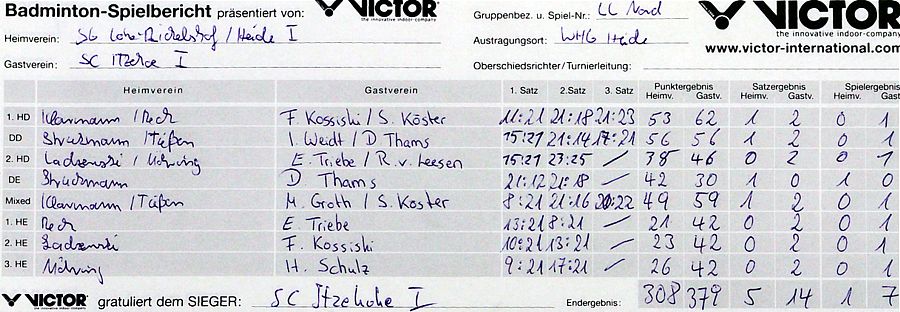 Badminton-Spielbericht präsentiert von: VICTOR the innovative indoor-company Gruppenbez. u. Spiel-Nr.: LL Nord VICTOR
the innovative indoor-company
Heimverein: SG / Heide I Austragungsort: WHG Heide www.victor-international.com
Gastverein: SC Itzehoe I Oberschiedsrichter/Turnierleitung:
Heimverein Gastverein 1. Satz 2.Satz 3. Satz Punktergebnis Heimv. Gastv. Satzergebnis Heimv. Gastv. Spielergebnis Heimv. Gast
1. HD Klarmann / Reck F. Kossiski / S. Köster 11:21 21:18 21:23 53 62 1 2 0 1
DD Struckmann / Tießen I. Weidt / D Thams 15:21 21:14 17:21 56 56 1 2 0 1
2. HD Ladzenski / Möhring E. Triebe / R. v. Leesen 15:21 23:25 / 38 46 0 2 0 1
DE Struckmann D Thams 21:12 21:18 / 42 30 1 0 1 0
Mixed Klarmann / Tießen M. Groth / S. Köster 8:21 21:16 20:22 49 59 1 2 0 1
1. HE Reck E Triebe 13:21 8:21 / 21 42 0 2 0 1
2. HE Ladzenski F. Kossiski 10:21 13:21 / 23 42 0 2 0 1
3. HE Möhring H. Schulz 9:21 17:21 / 26 42 0 2 0 1
VICTOR the innovative indoor-company gratuliert dem SIEGER: SC Itzehohe I Endergebnis: 308 379 5 14 1 7